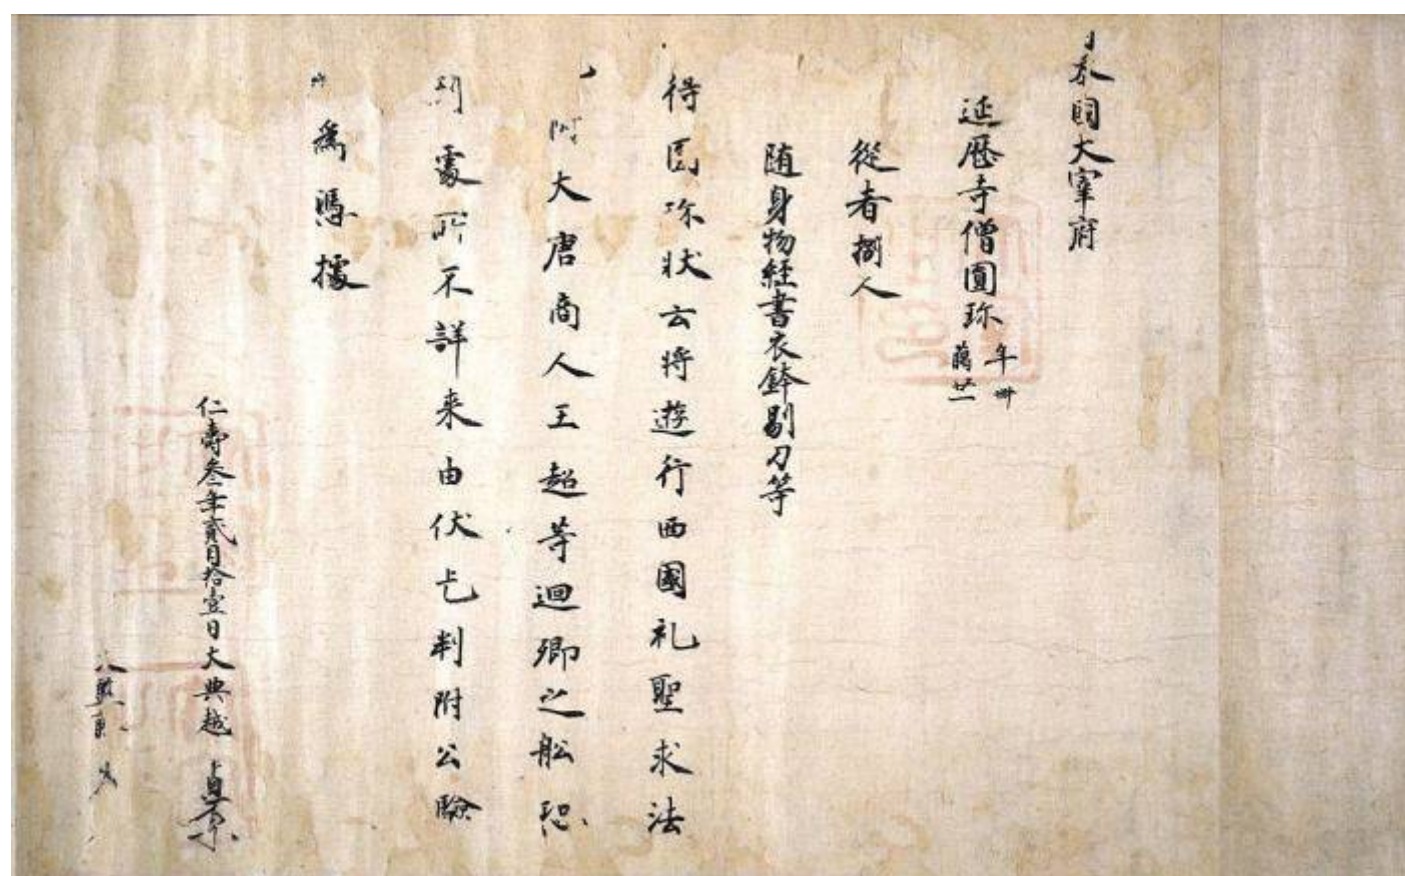 日本國大宰府
延曆寺僧圓珎 年卌 臈廿一
從者捌人
随身物經書衣鉢剔刀等
得圓珎狀云将遊行西國礼聖求法
附大唐商人王超等迴鄉之舩恐
到處所不詳来由伏乞判附公驗
以為憑據
仁壽叁年貳月拾壹日大典越貞原